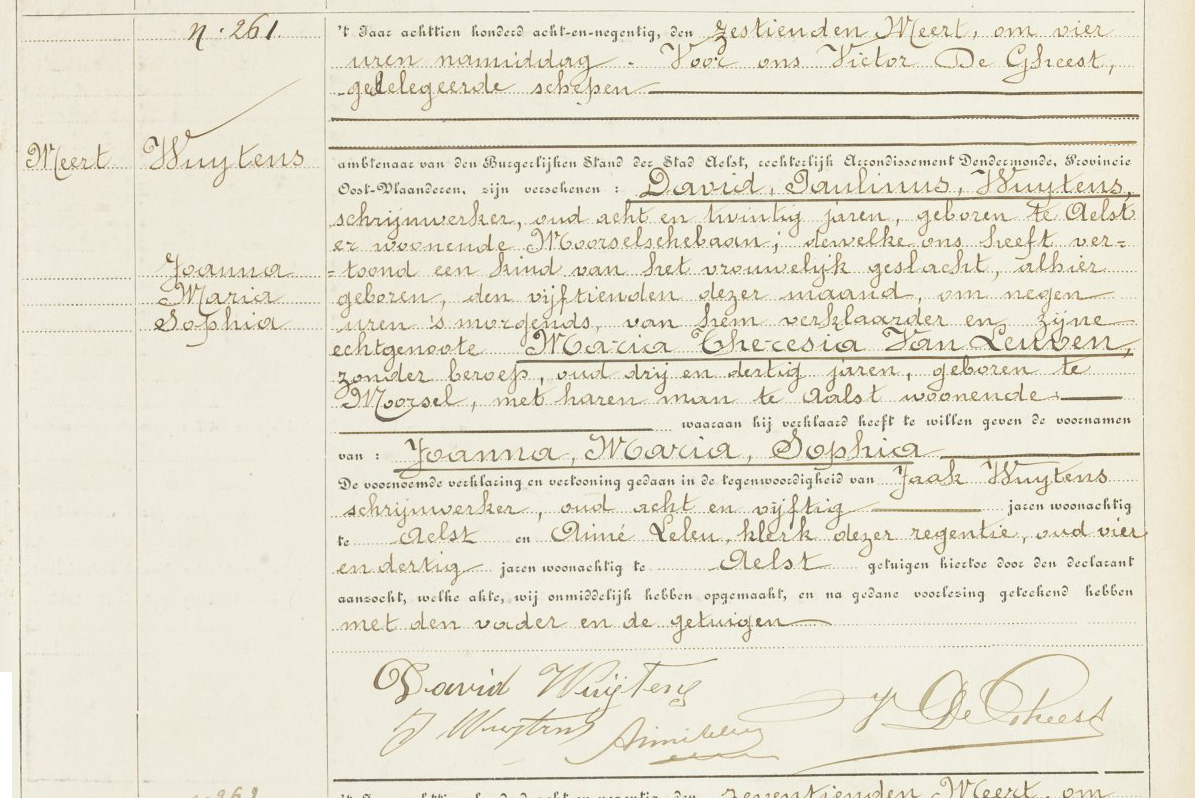 n. 261
't Jaar achttien honderd acht-en-negentig, den zestienden Meert, om vier
uren namiddag - Voor ons Victor De Gheest,
gedelegeerde schepen
Meert Wuytens
ambtenaar van den Burgerlijken Stand der Stad Aelst, rechterlijk Arrondissement Dendermonde, Provincie
Oost-Vlaanderen, zijn verschenen : David, Paulinus, Wuytens,
schrijnwerker, oud acht en twintig jaren, geboren te Aelst
er woonende Moorselschebaan; dewelke ons heeft ver=
Joanna
=toond een kind van het vrouwelijk geslacht, alhier
Maria
geboren, den vijftienden dezer maand, om negen
Sophia
uren 's morgends, van hem verklaarder en zijne
echtgenoote Maria Theresia Van Leuven,
zonder beroep, oud drij en dertig jaren, geboren te
Moorsel, met haren man te Aalst woonende.
waaraan hij verklaard heeft te willen geven de voornamen
van : Joanna, Maria, Sophia
De voornoemde verklaring en vertooning gedaan in de tegenwoordigheid van Jaak Wuytens
schrijnwerker, oud acht en vijftig jaren woonachtig
te Aelst en Aimé Leleu, klerk dezer regentie, oud vier
en dertig jaren woonachtig te Aelst getuigen hiertoe door den declarant
aanzocht, welke akte, wij onmiddelijk hebben opgemaakt, en na gedane voorlezing geteekend hebben
met den vader en de getuigen
David Wuijtens
J Wuytens
V De Gheest
zeventienden Meert, om